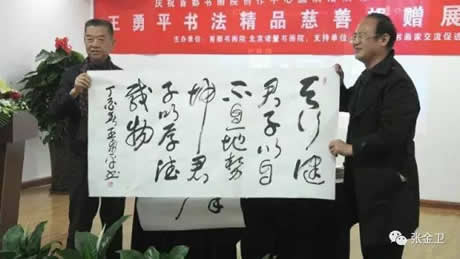 庆祝首都书画院创作中心
王勇平书法精品慈善捐赠展
主办单位：首都书画院 北京
书画院，支持单位：
书画家交流促进
天行健
君子以自
不息地势
坤君
子以厚德
载物
王勇平书
张金卫